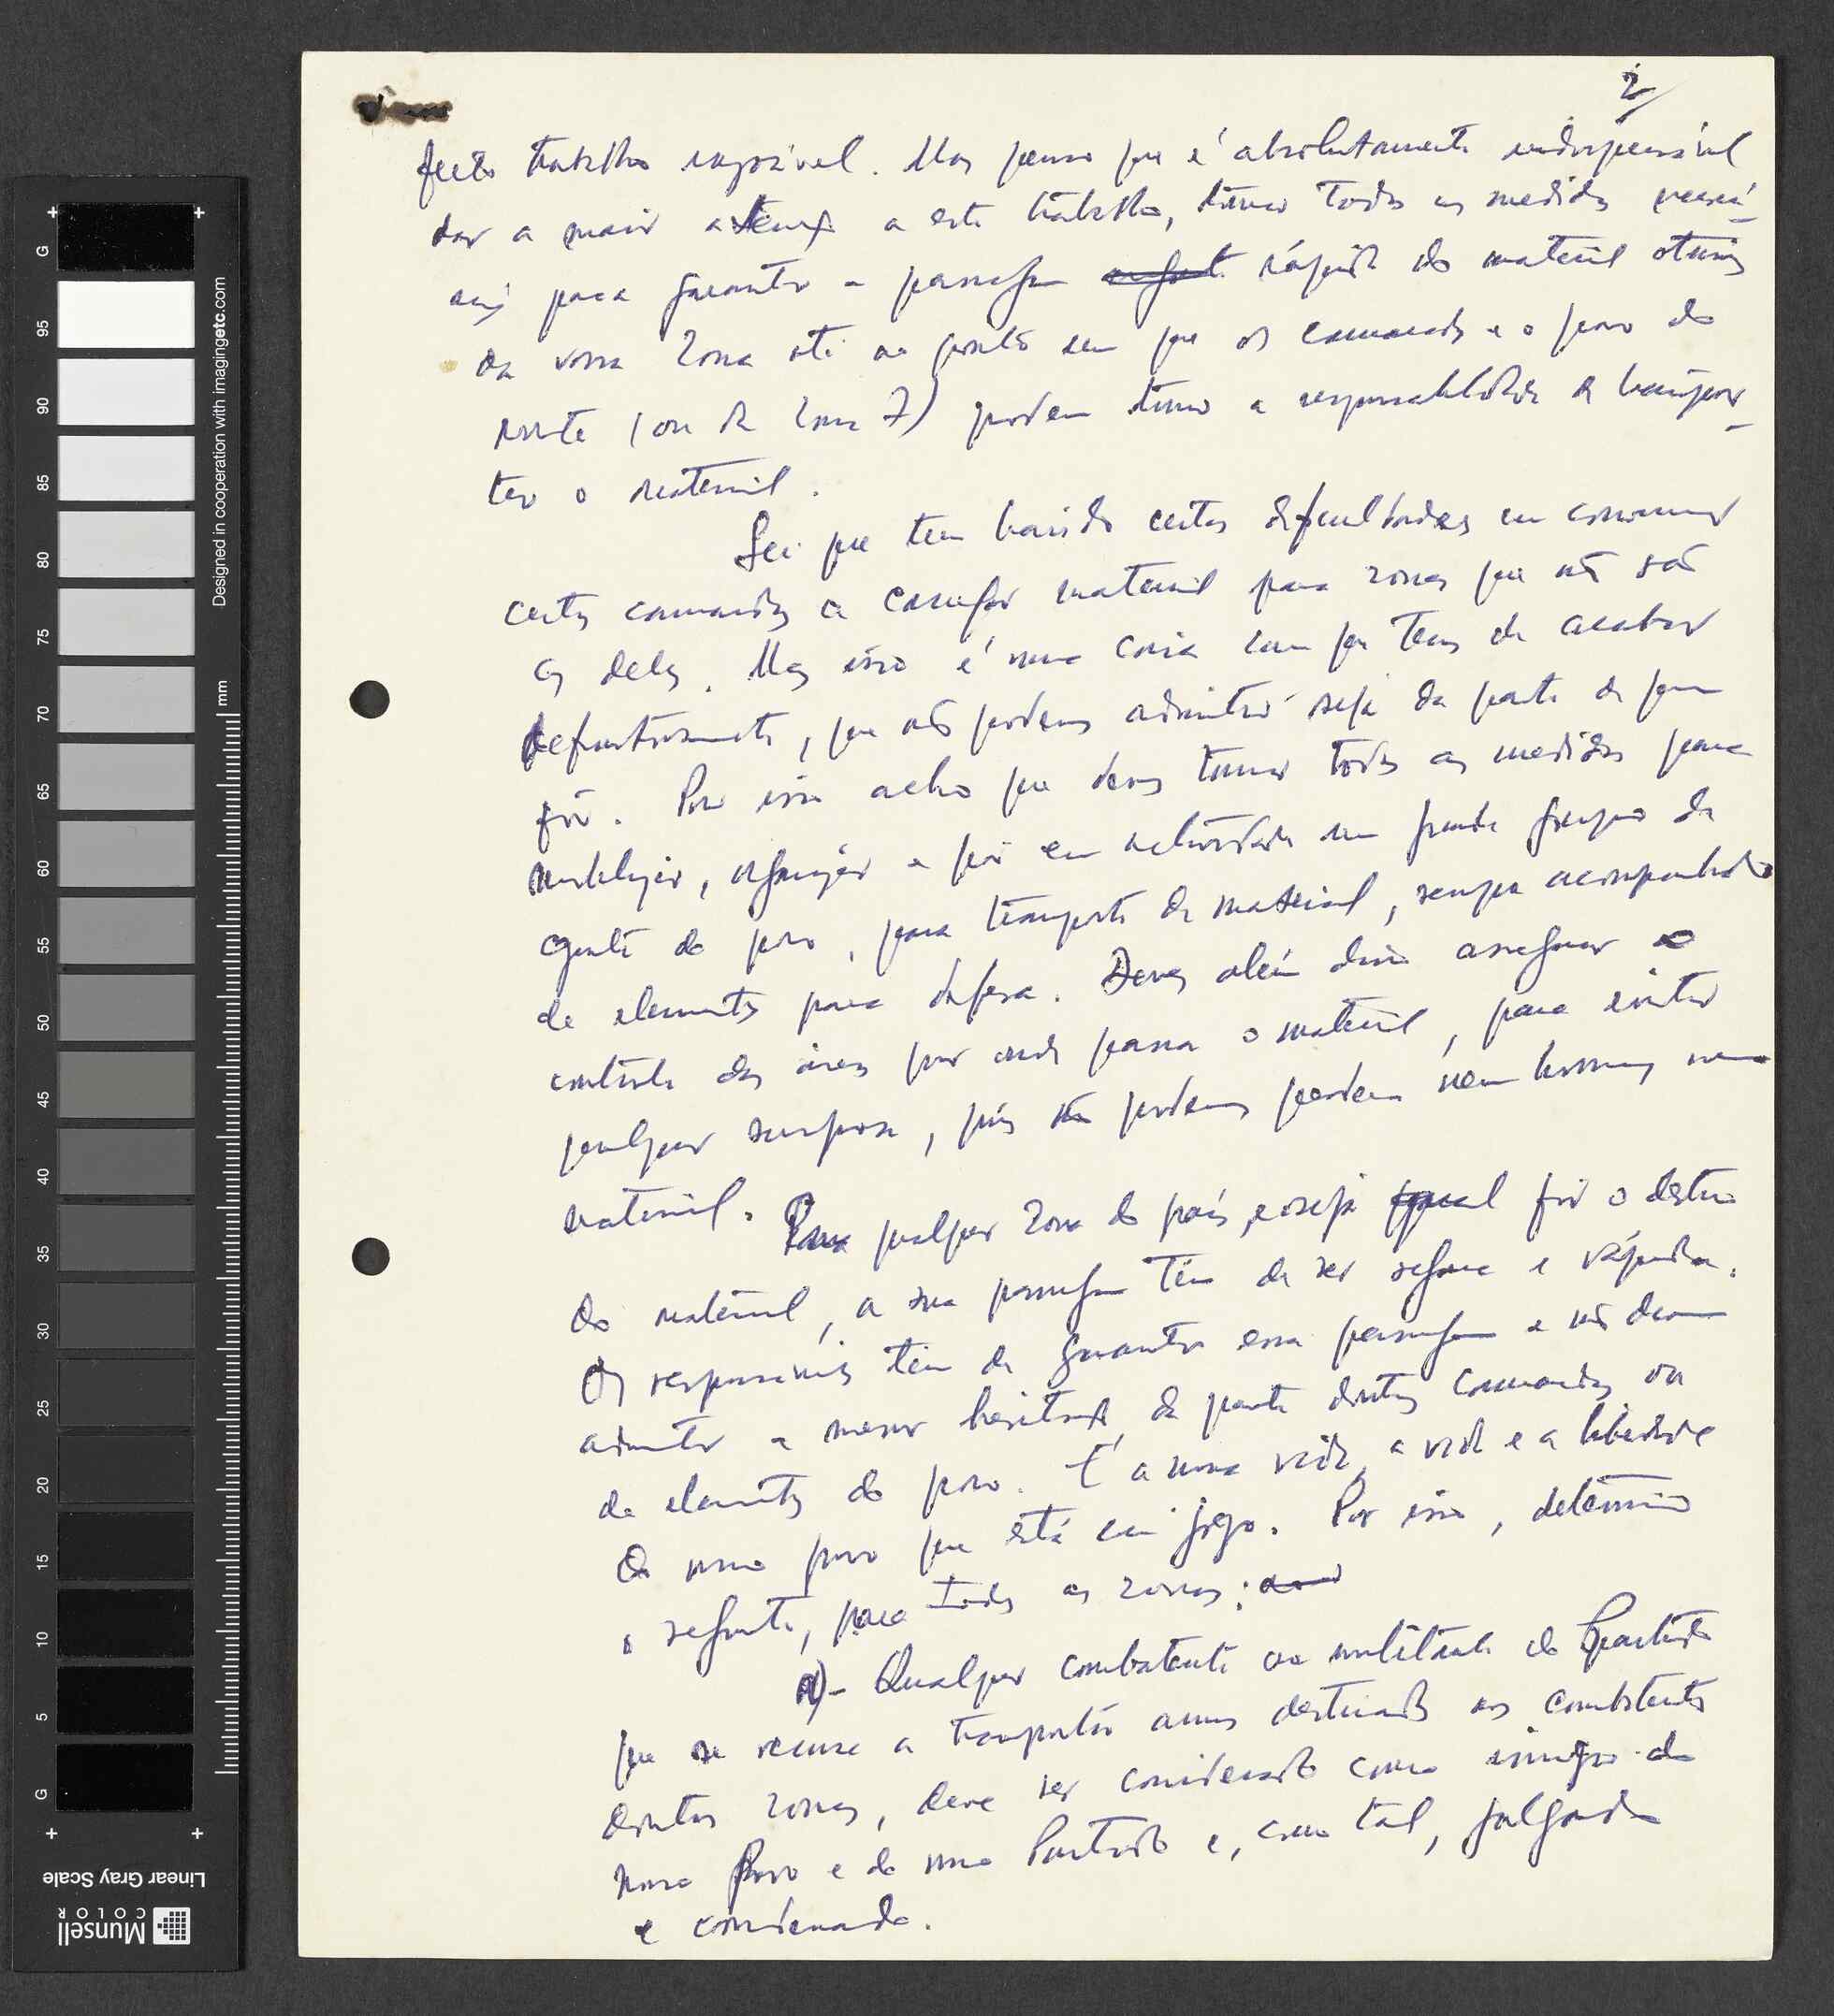 2/
feito trabalho razoável. Mas penso que é absolutamente indispensável
dar a maior atenção a este trabalho, tomar todas as medidas necessá-
rias para garantir a passagem rápida do material através
da vossa zona até ao ponto em que os camaradas e o povo do
norte (ou da zona 7) podem tomar a responsabilidade de transpor-
tar o material.
Sei que tem havido certas dificuldades em convencer
certos camaradas a carregar material para zonas que não são
as deles. Mas isso é uma coisa com que temos de acabar
definitivamente, que não podemos admitir seja da parte de quem
fôr. Por isso acho que deves tomar todas as medidas para
mobilizar, organizar e pôr em actividade um grande grupo de
gente do povo, para transporte de material, sempre acompanhado
de elementos para defesa. Deves além disso assegurar o
controle das áreas por onde passa o material, para evitar
qualquer surpresa, pois não podemos perder nem homens nem
material. Para qualquer zona do país, e seja qual fôr o destino
do material, a sua passagem têm de ser segura e rápida.
Os responsáveis têm de garantir essa passagem e não devem
admitir a menor hesitação da parte doutros camaradas ou
de elementos do povo. É a nossa vida, a vida e a liberdade
do nosso povo que está em jogo. Por isso, determino
o seguinte, para todas as zonas:
a)- Qualquer combatente ou militante do Partido
que se recuse a transportar armas destinadas aos combatentes
doutras zonas, deve ser considerado como inimigo do
nosso Povo e do nosso Partido e, como tal, julgado
e condenado.
G
95
90
85
80
75
70
65
60
55
50
45
40
35
30
25
20
15
10
5
G
mm
Designed in cooperation with imagingetc.com
Linear Gray Scale
Munsell
COLOR